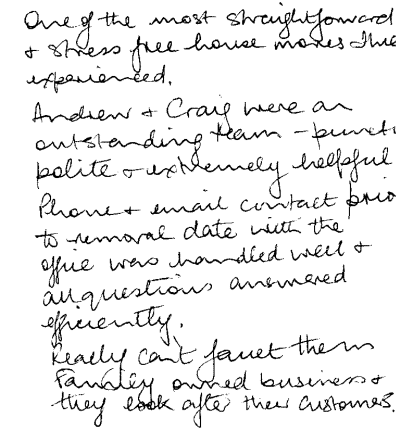 One of the most straightforward
& stress free house moves I've
experienced.
Andrew & Craig were an
outstanding team - puncti
polite & extremely helpful
Phone & email contact prio
to removal date with the
office was handled well &
all questions answered
efficiently.
Really can't fault them
Family owned business &
they look after their customers.